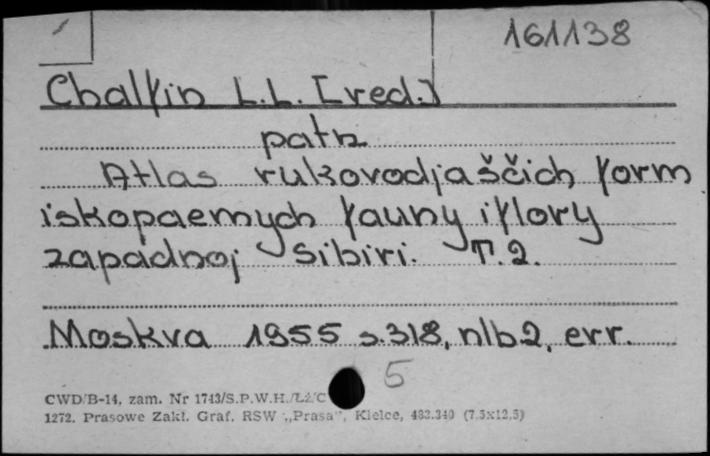 161138
Chalfin L.L. [red.]
patrz
Atlas rukovodjaščich form
iskopaemych fauny i flory
zapadnoj Sibiri. T.2.
Moskva 1955 s.318, nlb2, err.
5
CWD/B-14, zam. Nr 1743/S.P.W.H./Łź/C
1272. Prasowe Zakł. Graf. RSW „Prasa", Kielce, 483.340 (7,5x12,5)